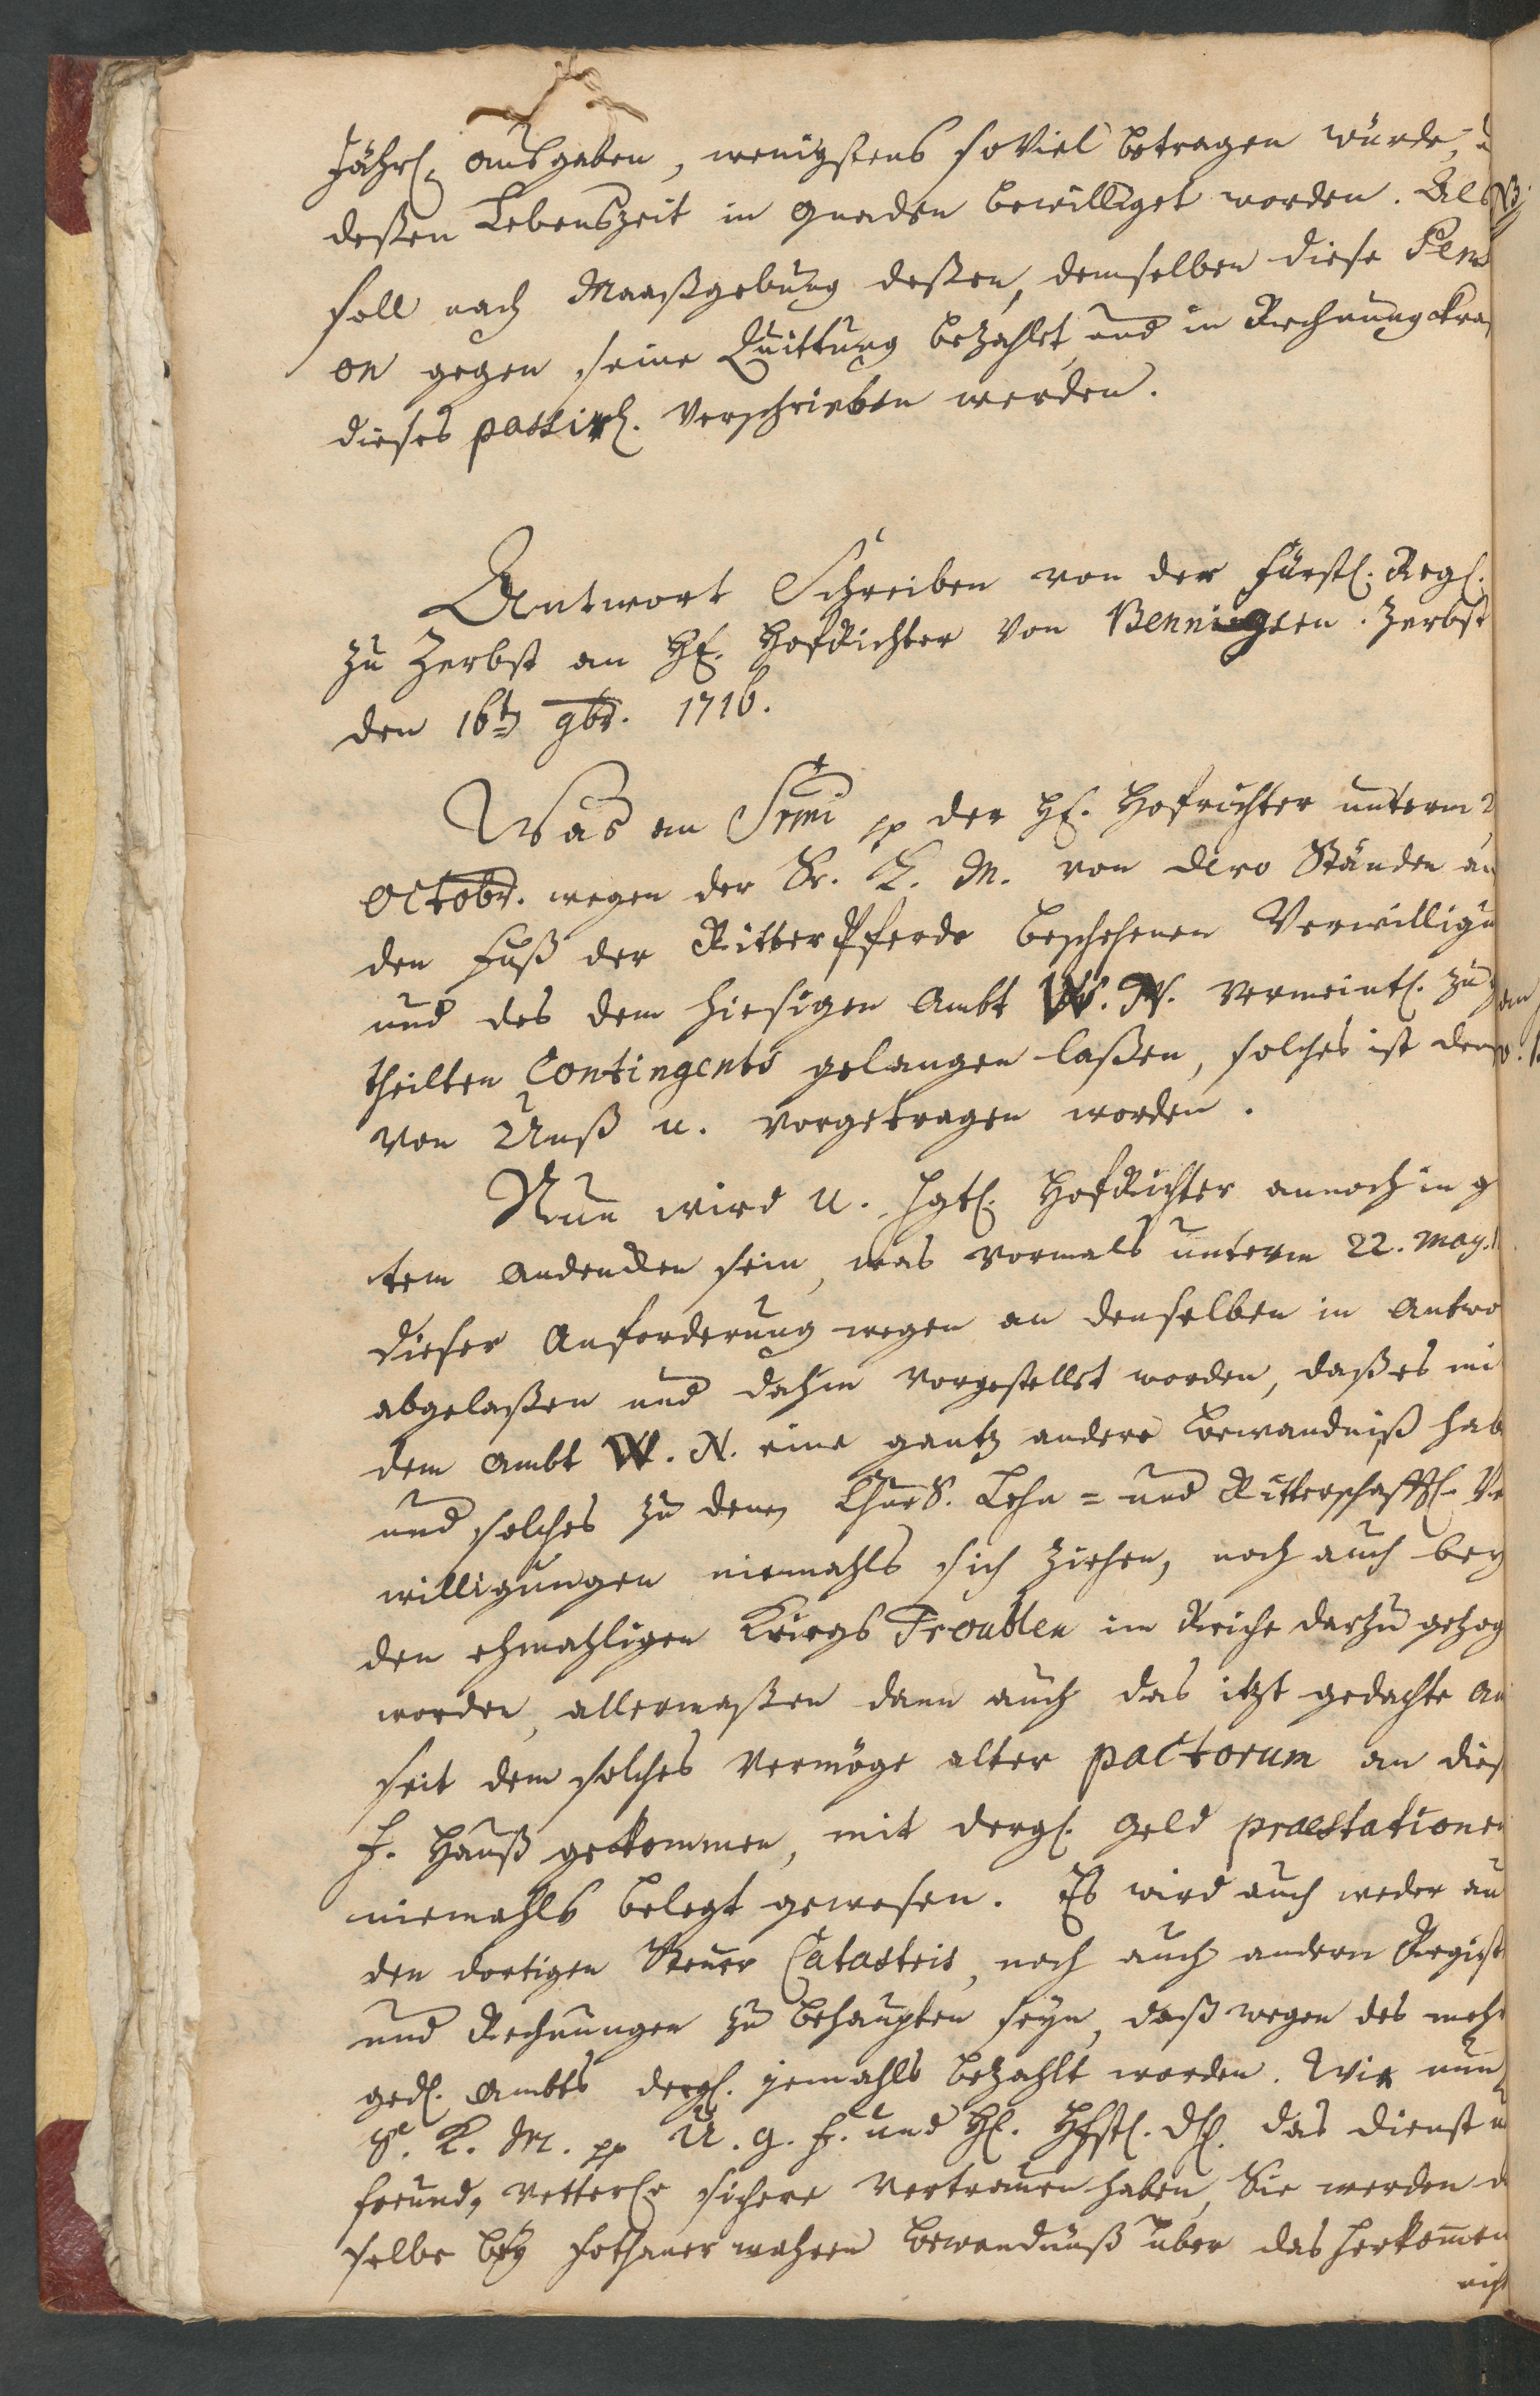 Jährl. ausgaben, wenigstens so Viel betragen würde,
deßen Lebenszeit in Gnaden bewilliget worden. Als
soll nach Maaßgebung deßen, demselben diese Pens
on gegen seine Quittung bezahlet, und in Rechnung kra
dieses passirl. verschrieben werden.
Antwort Schreiben von der Fürstl. Reg.
zu Zerbst an H. HofRichter Von Bennigsen. Zerbst
den 16t 9br. 1716.
Was an Srmi pp der H. Hofrichter unterm
Octobr. wegen der Sr. K. M. von dero Ständen au
den Fuß der RitterPferde beschehenen Verwilligu
und des dem hiesigen Ambt W. N. vermeintl. zu
theilten Contingents gelangen laßen, solches ist dem
von Unß u. vorgetragen worden.
Nun wird u. HofRichter annoch in g
tem andencken sein, was vormals unterm 22. May.
dieser Anforderung wegen an denselben in Antwo
abgelaßen und dahin vorgestellet worden, daß es mi
dem Ambt W. N. eine gantz andere bewandniß hab
und solches zu denen ChurS. Lehn- und Ritterschafftl. Ve
willigungen niemahls sich ziehen, noch auch bey
den ehmahligen Kriegs Troublen im Reiche darzu gezog
worden, allermaßen dann auch das itzt gedachte Am
seit dem solches Vermöge alter pactorum an dies
F. Hauß gekommen, mit dergl. Geld praestationen
niemahls belegt gewesen. Es wird auch weder au
den dortigen Steuer Catastris, noch auch andern Regist
und Rechnungen zu behaupten seyn, daß wegen des meh
ged. Ambts dergl. jemahls bezahlt worden. Wie nun
Sr. K. M. pp U. g. F. und H. das dienst
freund, vetterl. sichere Vertrauen haben, Sie werden d
selbe bey sothaner wahren bewandnüß über das herkommen
nich